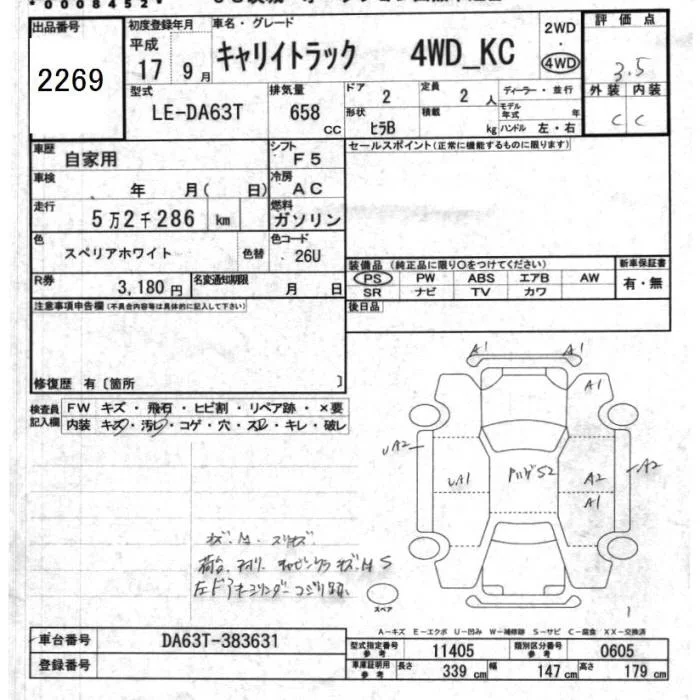 *0008452*
出品番号
2269
初度登録年月
平成
17 9月
車名・グレード
キャリイトラック 4WD_KC
2WD
・
4WD
評価点
3.5
外装 内装
C C
型式
LE-DA63T
排気量
658 CC
ドア
2
定員
2 人
ディーラー・並行
形状
ヒラB
積載
kg
モデル年式 年
ハンドル 左・右
車歴
自家用
シフト
F5
セールスポイント(正常に機能するものに限ります)
車検
年 月( 日)
冷房
AC
走行
5万2千286 km
燃料
ガソリン
色
スペリアホワイト
色替
色コード
26U
装備品(純正品に限り〇をつけてください)
新車保証書
PS PW ABS エアB AW
有・無
SR ナビ TV カワ
R券
3,180円
名変通知期限
月 日
後日品
注意事項申告欄(不具合内容等は具体的に記入して下さい)
修復歴 有〔箇所 〕
検査員記入欄
FW キズ・飛石・ヒビ割・リペア跡・×要
内装 キズ・汚レ・コゲ・穴・スレ・キレ・破レ
A1 A1
A1
UA2
UA1
S2
A2
A1
A2
スペア
1
A-キズ E-エクボ U-凹み W-補修跡 S-サビ C-腐食 XX-交換済
車台番号
DA63T-383631
登録番号
型式指定番号参考
11405
類別区分番号参考
0605
車庫証明用参考
長さ 339 cm
幅 147 cm
高さ 179 cm